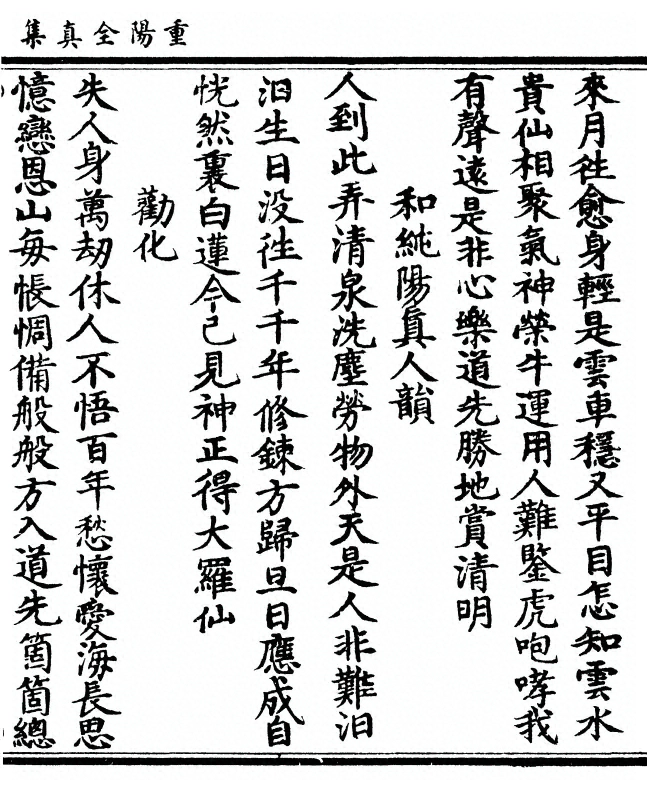 重陽全真集
來月徃愈身輕是雲車穩又平目怎知雲水
貴仙相聚氣神榮牛運用人難鑒虎咆哮我
有聲遠是非心樂道先勝地賞清明
和純陽真人韻
人到此弄清泉洗塵勞物外天是人非難汩
汩生日没徃千千年修鍊方歸旦日應成自
恍然裏白蓮今已見神正得大羅仙
勸化
失人身萬劫休人不悟百年愁懷愛海長思
憶戀恩山每悵惆備般般方入道先箇箇總